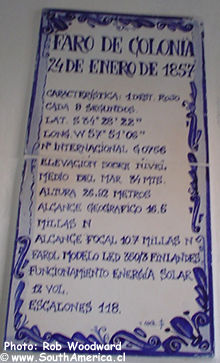 FARO DE COLONIA
24 DE ENERO DE 1857
CARACTERISTICA: 1 DEST. ROJO
CADA 9 SEGUNDOS.
LAT. S 34° 28' 22"
LONG. W 57° 51' 06"
N° INTERNACIONAL G 0756
ELEVACION SOBRE NIVEL
MEDIO DEL MAR 34 MTS.
ALTURA 26.52 METROS
ALCANCE GEOGRAFICO 16.5
MILLAS N
ALCANCE FOCAL 10.7 MILLAS N
FAROL MODELO LED FINLANDES
FUNCIONAMIENTO ENERGÍA SOLAR
12 VOL.
ESCALONES 118.
Photo: Rob Woodward
www.SouthAmerica.cl